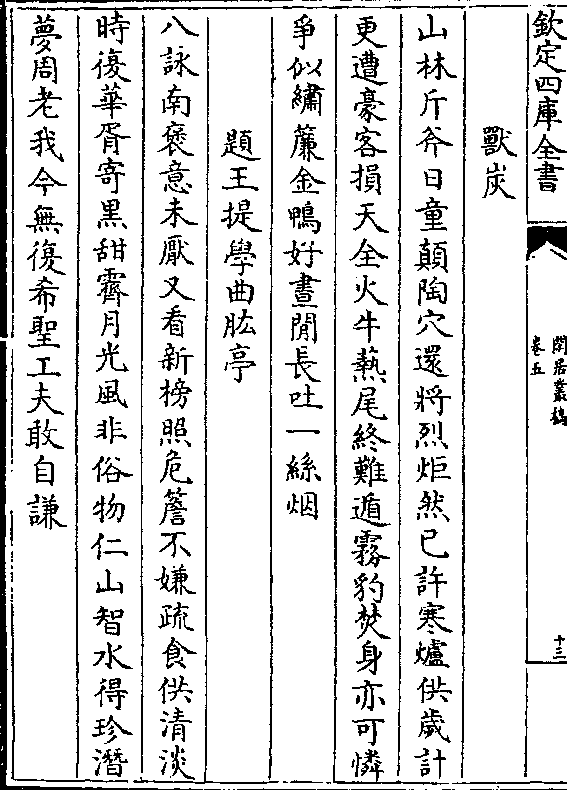 欽定四庫全書
閒居叢稿
卷五
十三
獸炭
山林斤斧日童顛陶穴還將烈炬然已許寒爐供歲計
更遭豪客損天全火牛爇尾終難遁霧豹焚身亦可憐
爭似繡簾金鴨好晝閒長吐一絲烟
題王提學曲肱亭
八詠南襃意未厭又看新榜照危簷不嫌疏食供清淡
時復華胥寄黑甜霽月光風非俗物仁山智水得珍潛
夢周老我今無復希聖工夫敢自謙